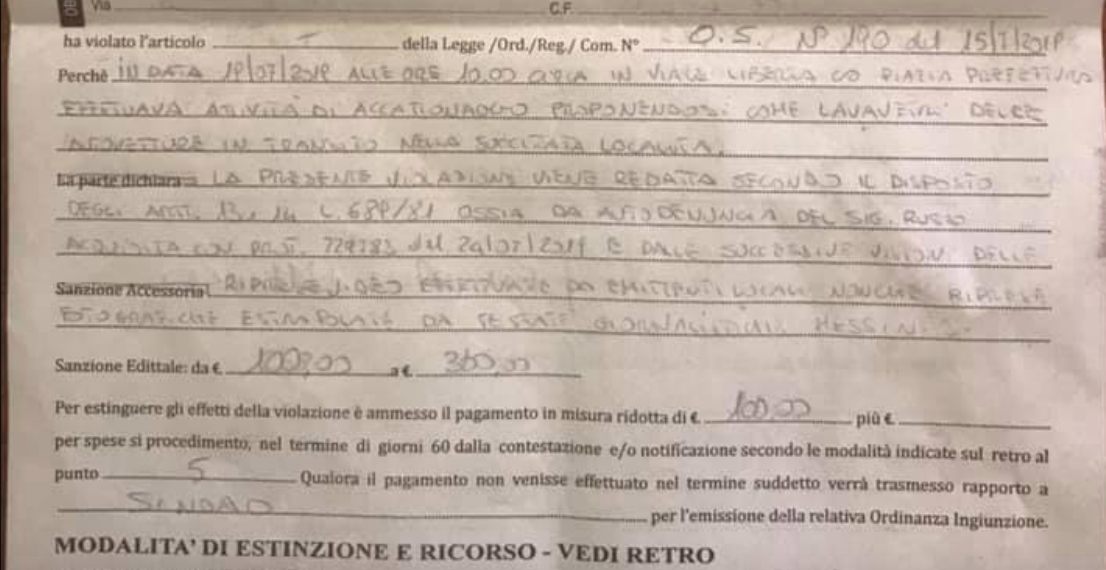 Via C.F.
ha violato l'articolo della Legge /Ord./Reg./ Com. N° O.S. N° 190 del 15/7/2019
Perchè IN DATA 19/07/2019 ALLE ORE 10,00 CIRCA IN VIALE LIBERTÀ CO PIAZZA PREFETTURA
EFFETTUAVA ATTIVITÀ DI ACCATTONAGGIO PROPONENDOSI COME LAVAVETRI DELLE
AUTOVETTURE IN TRANSITO NELLA SUCCITATA LOCALITÀ.
La parte dichiara LA PRESENTE VIOLAZIONE VIENE REDATTA SECONDO IL DISPOSTO
DEGLI ARTT. 13 e 14 L. 689/81 OSSIA DA AUTODENUNCIA DEL SIG. RUSSO
ACQUISITA CON PROT. del E DALLE SUCCESSIVE VISIONI DELLE
Sanzione Accessoria RIPRESE VIDEO EFFETTUATE DA EMITTENTI LOCALI NONCHÈ RIPRESE
FOTOGRAFICHE DA TESTATE
Sanzione Edittale: da € a € 360,00
Per estinguere gli effetti della violazione è ammesso il pagamento in misura ridotta di €. 100,00 più €
per spese si procedimento, nel termine di giorni 60 dalla contestazione e/o notificazione secondo le modalità indicate sul retro al
punto 5 Qualora il pagamento non venisse effettuato nel termine suddetto verrà trasmesso rapporto a
SINDACO per l'emissione della relativa Ordinanza Ingiunzione.
MODALITA' DI ESTINZIONE E RICORSO - VEDI RETRO